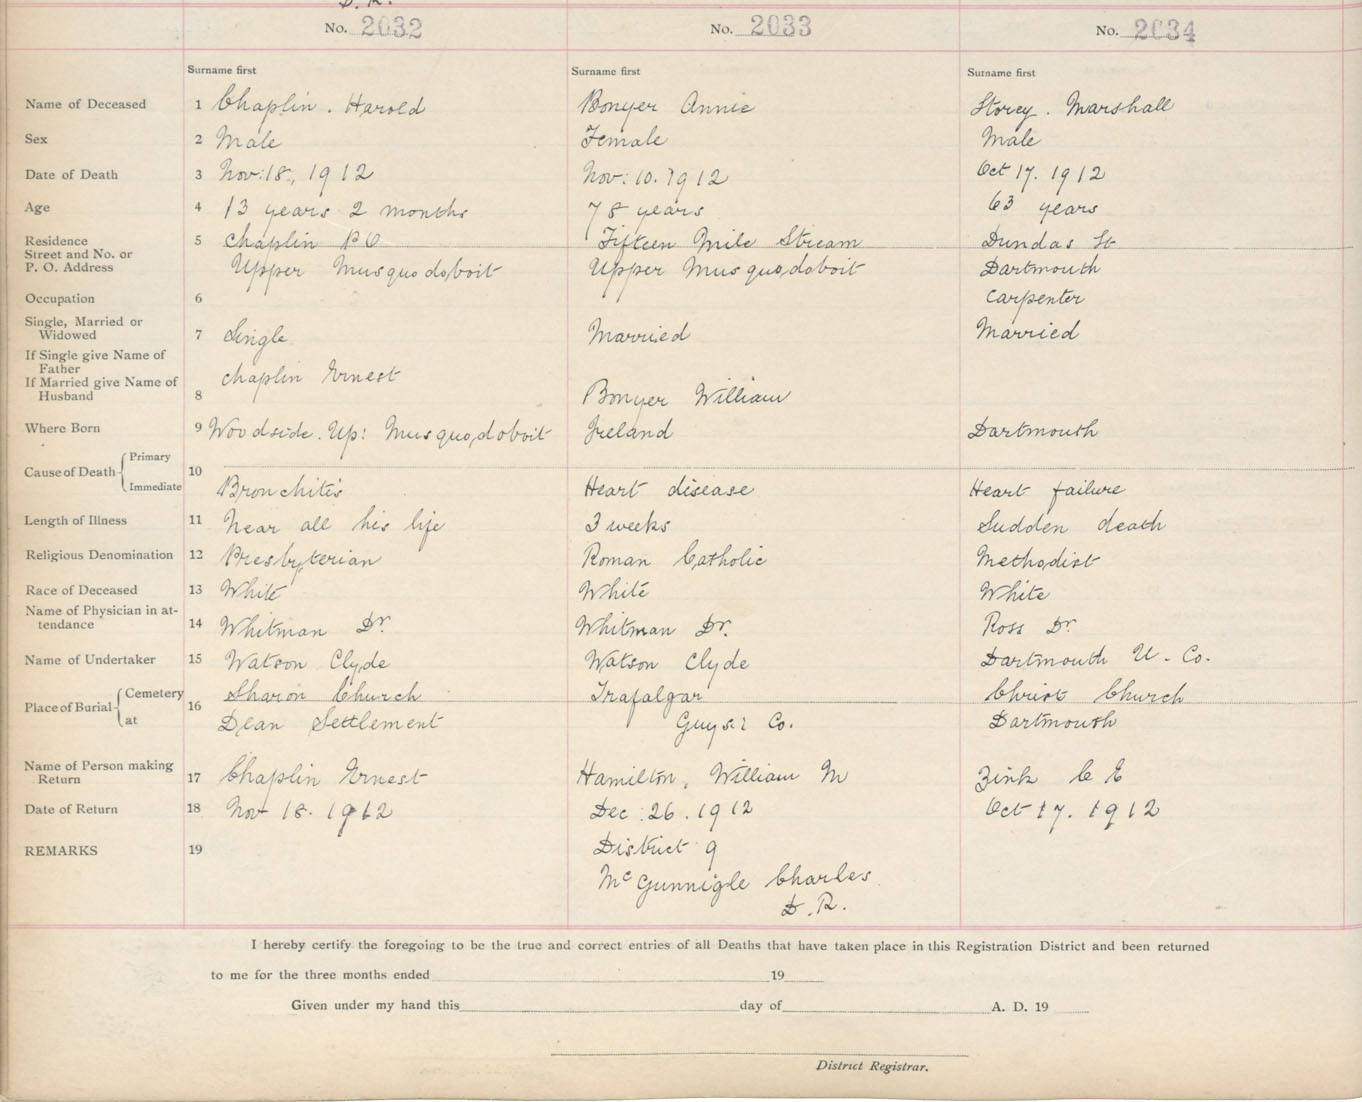 D. R.
No. 2032 No. 2033 No. 2034
Surname first Surname first Surname first
Name of Deceased 1 Chaplin. Harold Bonyer Annie Storey. Marshall
Sex 2 Male Female Male
Date of Death 3 Nov: 18., 1912 Nov: 10. 1912 Oct 17. 1912
Age 4 13 years 2 months 78 years 63 years
Residence 5 Chaplin P O Fifteen Mile Stream Dundas St
Street and No. or
P. O. Address Upper Musquodoboit Upper Musquodoboit Dartmouth
Occupation 6 Carpenter
Single, Married or
Widowed 7 Single Married Married
If Single give Name of
Father
If Married give Name of Chaplin Ernest
Husband 8 Bonyer William
Where Born 9 Woodside. Up: Musquodoboit Ireland Dartmouth
Cause of Death { Primary 10
Immediate Bronchitis Heart disease Heart failure
Length of Illness 11 Near all his life 3 weeks Sudden death
Religious Denomination 12 Presbyterian Roman Catholic Methodist
Race of Deceased 13 White White White
Name of Physician in at-
tendance 14 Whitman Dr. Whitman Dr. Ross Dr
Name of Undertaker 15 Watson Clyde Watson Clyde Dartmouth U. Co.
Place of Burial { Cemetery 16 Sharon Church Trafalgar Christ Church
at Dean Settlement Guys: Co. Dartmouth
Name of Person making
Return 17 Chaplin Ernest Hamilton, William M Zink C E
Date of Return 18 Nov 18. 1912 Dec: 26. 1912 Oct 17. 1912
REMARKS 19 District 9
McGunnigle Charles
D. R.
I hereby certify the foregoing to be the true and correct entries of all Deaths that have taken place in this Registration District and been returned
to me for the three months ended 19
Given under my hand this day of A. D. 19
District Registrar.